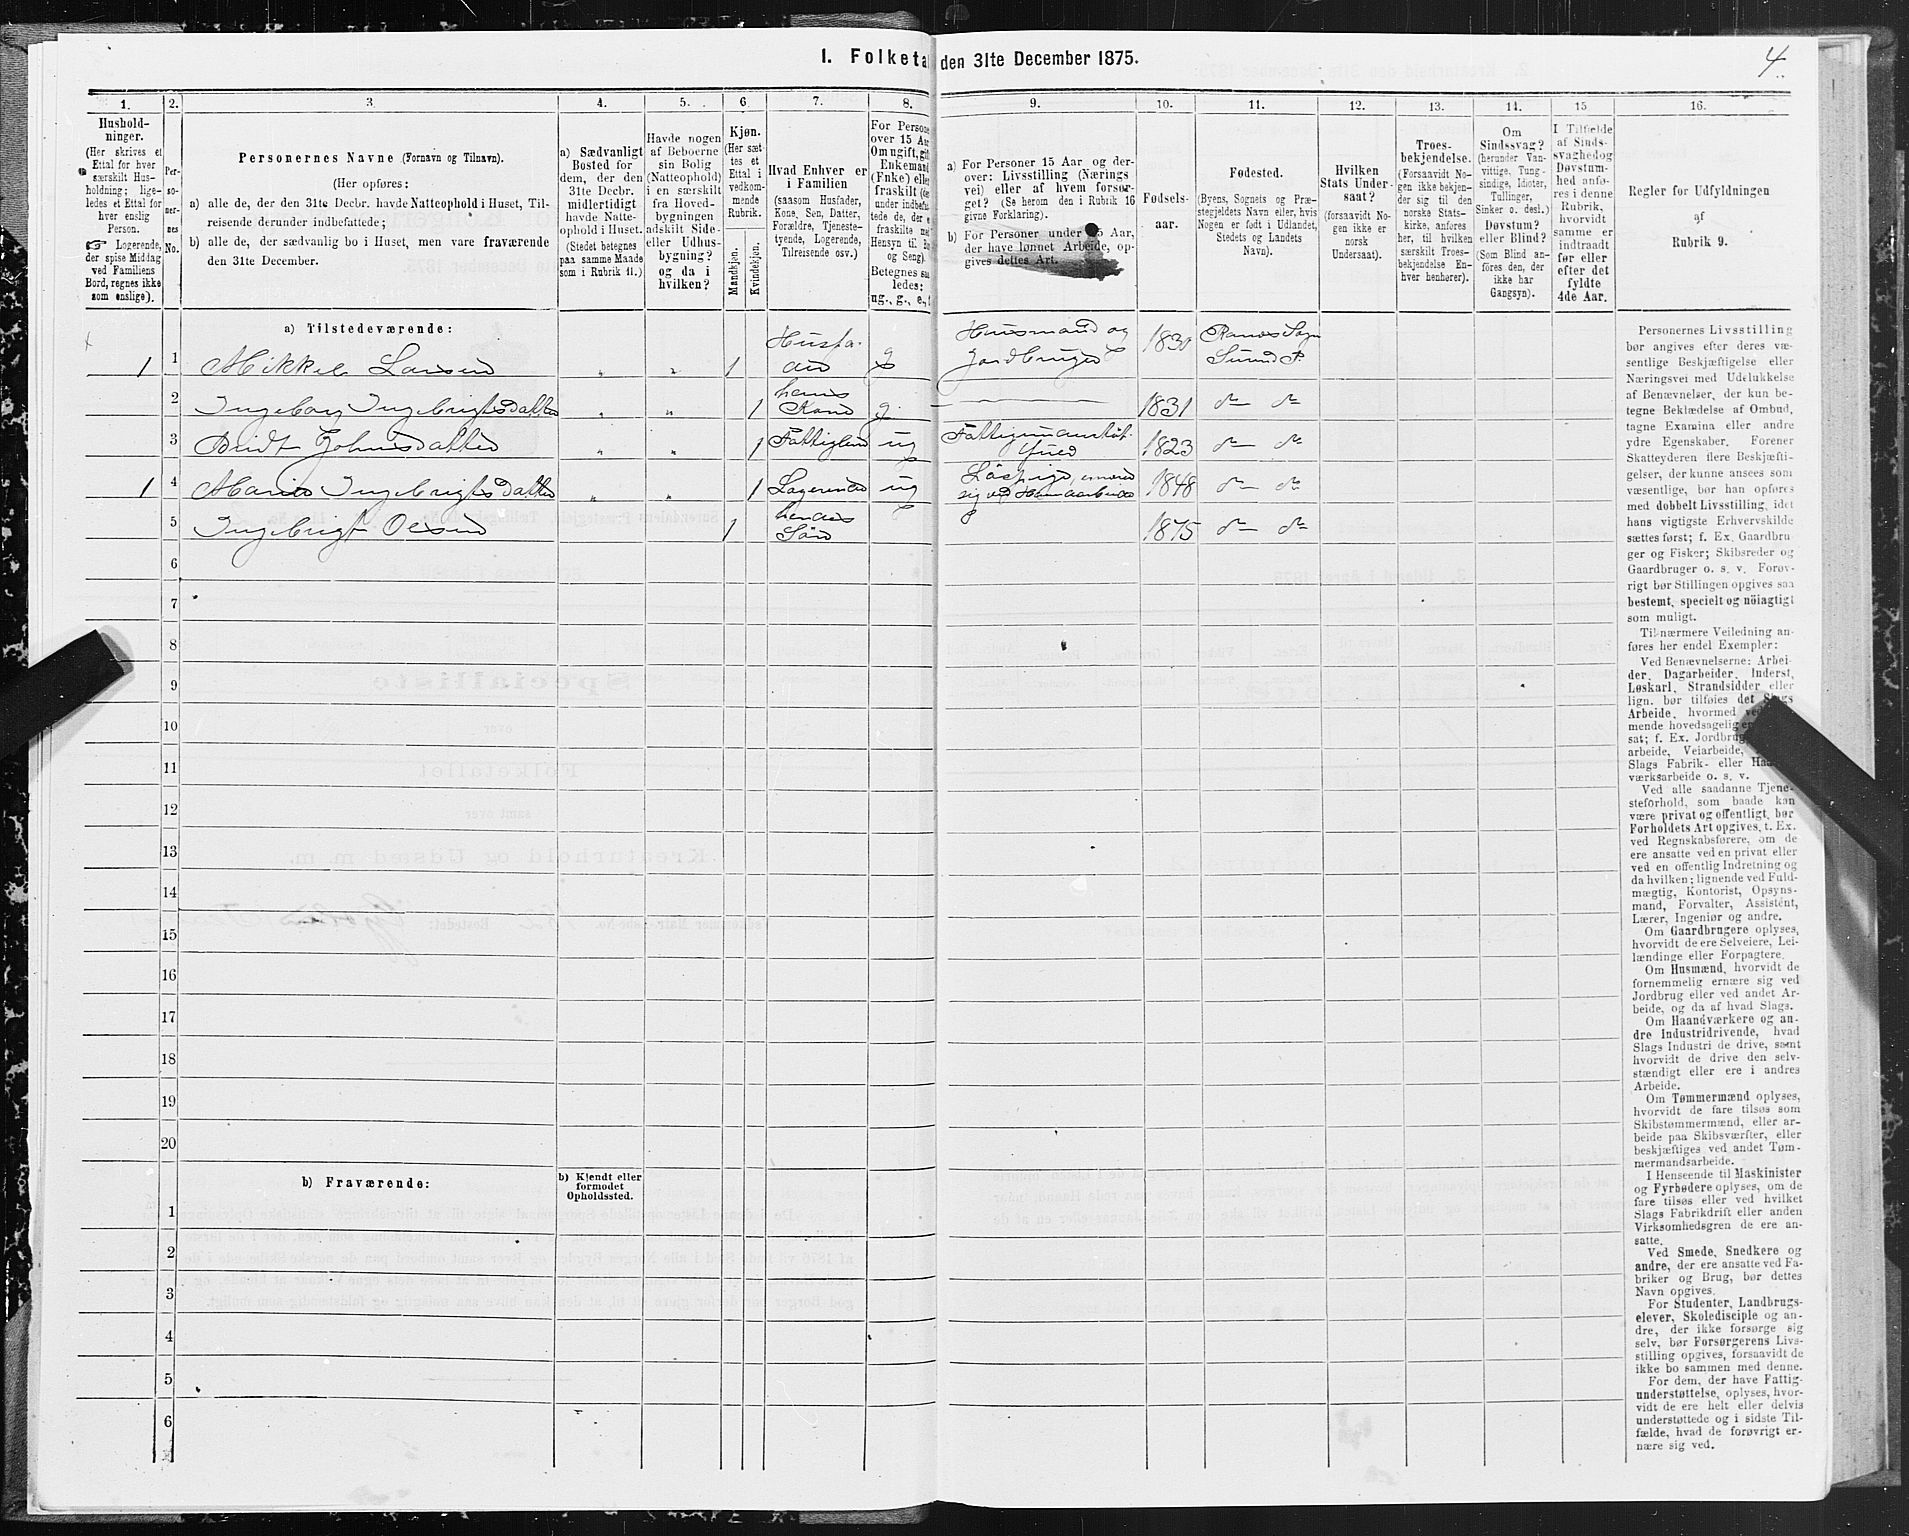 1. Folketa den 31te December 1875.
4
1.
2.
3.
4.
5.
6.
7.
8.
9.
10.
11.
12.
13.
14.
15
16.
Hushold-
ninger.
(Her skrives et
Ettal for hver
særskilt Hus-
holdning; lige-
ledes et Ettal for
hver enslig
Person.
☞ Logerende,
der spise Middag
ved Familiens
Bord, regnes ikke
som enslige).
Per-
so-
ner-
nes
No.
Personernes Navne (Fornavn og Tilnavn).
(Her opføres:
a) alle de, der den 31te Decbr. havde Natteophold i Huset, Til-
reisende derunder indbefattede;
b) alle de, der sædvanlig bo i Huset, men vare fraværende
den 31te December.
a) Sædvanligt
Bosted for
dem, der den
31te Decbr.
midlertidigt
havde Natte-
ophold i Huset.
(Stedet betegnes
paa samme Maade
som i Rubrik 11.)
Havde nogen
af Beboerne
sin Bolig
(Natteophold)
i en særskilt
fra Hoved-
bygningen
adskilt Side-
eller Udhus-
bygning?
og da i
hvilken?
Kjøn.
(Her sæt-
tes et
Ettal i
vedkom-
mende
Rubrik.
Mandkjøn.
Kvindekjøn.
Hvad Enhver er
i Familien
(saasom Husfader,
Kone, Søn, Datter,
Forældre, Tjeneste-
tyende, Logerende,
Tilreisende osv.)
For Persone
over 15 Aar
Om ugift, gif
Enkemand
(Enke) elle
fraskilt (de
under indbefa
tede de, der e
fraskilte me
Hensyn til Bo
og Seng).
Betegnes saa
ledes:
ug., g., e., f
a) For Personer 15 Aar og der-
over: Livsstilling (Nærings
vei) eller af hvem forsør-
get? (Se herom den i Rubrik 16
givne Forklaring).
b) For Personer under 15 Aar,
der have lønnet Arbeide, op-
gives dettes Art.
Fødsels-
aar.
Fødested.
(Byens, Sognets og Præ-
stegjeldets Navn eller, hvis
Nogen er født i Udlandet,
Stedets og Landets
Navn).
Hvilken
Stats Under-
saat?
(forsaavidt No-
gen ikke er
norsk
Undersaat).
Troes-
bekjendelse.
(Forsaavidt No-
gen ikke bekjen-
der sig til den
norske Stats-
kirke, anføres
her, til hvilken
særskilt Troes-
bekjendelse En-
hver henhører).
Om
Sindssvag?
(herunder Van-
vittige, Tung-
sindige, Idioter,
Tullinger,
Sinker o. desl.)
Døvstum?
eller Blind?
(Som Blind an-
føres den, der
ikke har
Gangsyn).
I Tilfælde
af Sinds-
svaghed og
Døvstum-
hed anfø-
res i denne
Rubrik,
hvorvidt
samme er
indtraadt
før eller
efter det
fyldte
4de Aar.
Regler for Udfyldningen
af
Rubrik 9.
a) Tilstedeværende:
1 1 Mikkel Larsen " " 1 Husfa-
der g Huusmand og
Jordbruger 1830 Ranes Sogn
Surend. P.
2 Ingeborg Ingebrigtsdatter " " 1 hans
Kone g 1831 do do
3 Berit Johnsdatter " " 1 Fattiglem ug 1823 do do
1 4 Marit Ingebrigtsdatter " " 1 Logerende ug 1848 do do
5 Ingebrigt Olsen 1 hendes
Søn 1875 do do
6
7
8
9
10
11
12
13
14
15
16
17
18
19
20
b) Fraværende:
b) Kjendt eller
formodet
Opholdssted.
1
2
3
4
5
6
Personernes Livsstilling
bør angives efter deres væ-
sentlige Beskjæftigelse eller
Næringsvei med Udelukkelse
af Benævnelser, der kun be-
tegne Beklædelse af Ombud,
tagne Examina eller andre
ydre Egenskaber. Forener
Skatteyderen flere Beskjæfti-
gelser, der kunne ansees som
væsentlige, bør han opføres
med dobbelt Livsstilling, idet
hans vigtigste Erhvervskilde
sættes først; f. Ex. Gaardbru-
ger og Fisker; Skibsreder og
Gaardbruger o. s. v. Forøv-
rigt bør Stillingen opgives saa
bestemt, specielt og nöiagtigt
som muligt.
Til nærmere Veiledning an-
føres her endel Exempler:
Ved Benævnelserne: Arbei-
der, Dagarbeider, Inderst,
Løskarl, Strandsidder eller
lign. bør tilføies det Slags
Arbeide, hvormed
mende hovedsagelig er
sat; f. Ex. Jordbrug,
arbeide, Veiarbeide,
Slags Fabrik- eller Haand-
værksarbeide o. s. v.
Ved alle saadanne Tjene-
steforhold, som baade kan
være privat og offentligt, bør
Forholdets Art opgives, t. Ex.
ved Regnskabsførere, om de
ere ansatte ved en privat eller
ved en offentlig Indretning og
da hvilken; lignende ved Fuld-
mægtig, Kontorist, Opsyns-
mand, Forvalter, Assistent,
Lærer, Ingeniør og andre.
Om Gaardbrugere oplyses,
hvorvidt de ere Selveiere, Lei-
lændinge eller Forpagtere.
Om Husmænd, hvorvidt de
fornemmelig ernære sig ved
Jordbrug eller ved andet Ar-
beide, og da af hvad Slags.
Om Haandværkere og an-
dre Industridrivende, hvad
Slags Industri de drive, samt
hvorvidt de drive den selv-
stændigt eller ere i andres
Arbeide.
Om Tømmermænd oplyses,
hvorvidt de fare tilsøs som
Skibstømmermænd, eller ar-
beide paa Skibsværfter, eller
beskjæftiges ved andet Tøm-
mermandsarbeide.
I Henseende til Maskinister
og Fyrbødere oplyses, om de
fare tilsøs eller ved hvilket
Slags Fabrikdrift eller anden
Virksomhedsgren de ere an-
satte.
Ved Smede, Snedkere og
andre, der ere ansatte ved Fa-
briker og Brug, bør dettes
Navn opgives.
For Studenter, Landbrugs-
elever, Skoledisciple og an-
dre, der ikke forsørge sig
selv, bør Forsørgerens Livs-
stilling opgives, forsaavidt de
ikke bo sammen med denne.
For dem, der have Fattig-
understøttelse, oplyses, hvor-
vidt de ere helt eller delvis
understøttede og i sidste Til-
fælde, hvad de forøvrigt er-
nære sig ved.